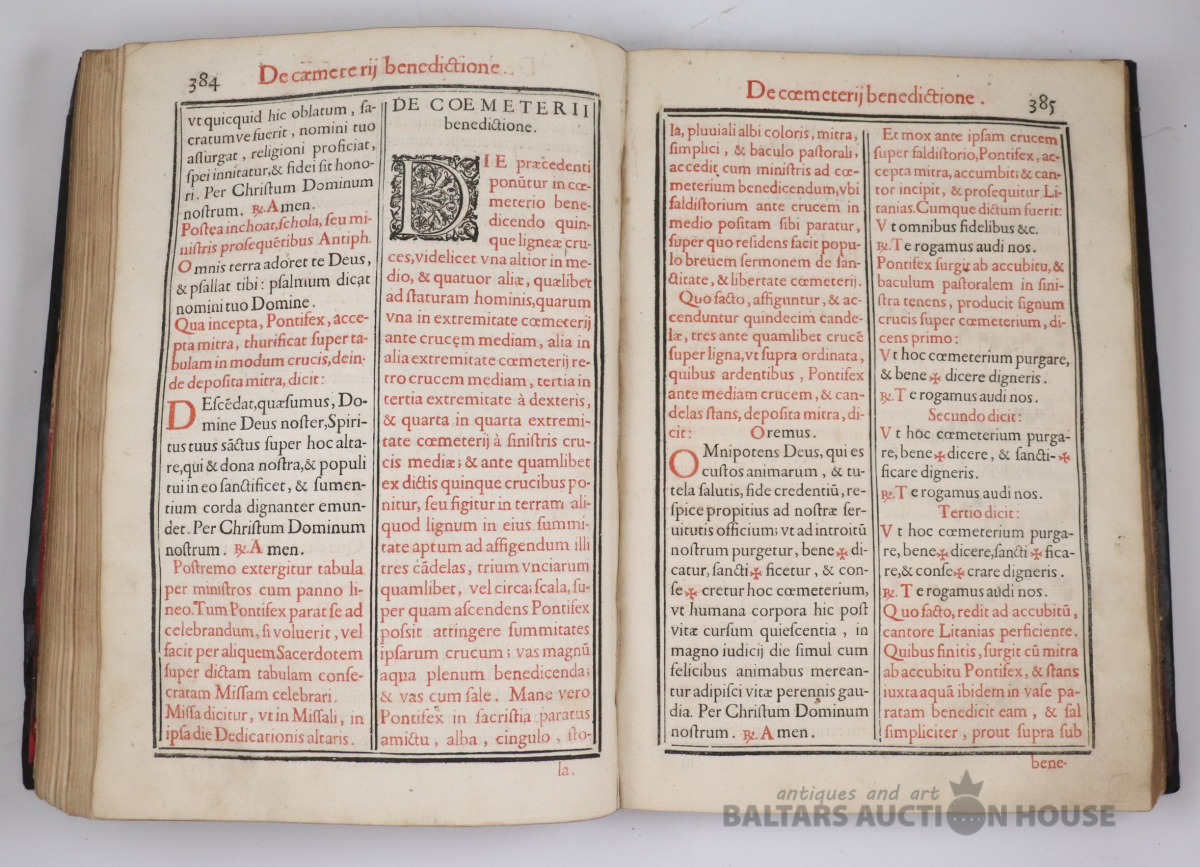 384
De cæmeterij benedictione.
vt quicquid hic oblatum, sa-
cratumve fuerit, nomini tuo
assurgat, religioni proficiat,
spei innitatur, & fidei sit hono-
ri. Per Christum Dominum
nostrum. ℟. Amen.
Postea inchoat, schola, seu mi-
nistris prosequētibus Antiph.
Omnis terra adoret te Deus,
& psallat tibi: psalmum dicat
nomini tuo Domine.
Qua incepta, Pontifex, acce-
pta mitra, thurificat super ta-
bulam in modum crucis, dein-
de deposita mitra, dicit:
DEscēdat, quæsumus, Do-
mine Deus noster, Spiri-
tus tuus sāctus super hoc alta-
re, qui & dona nostra, & populi
tui in eo sanctificet, & sumen-
tium corda dignanter emun-
det. Per Christum Dominum
nostrum. ℟. Amen.
Postremo extergitur tabula
per ministros cum panno li-
neo. Tum Pontifex parat se ad
celebrandum, si voluerit, vel
facit per aliquem Sacerdotem
super dictam tabulam conse-
cratam Missam celebrari.
Missa dicitur, vt in Missali, in
ipsa die Dedicationis altaris.
DE COEMETERII
benedictione.
DIE præcedenti
ponūtur in cœ-
meterio bene-
dicendo quin-
que ligneæ cru-
ces, videlicet vna altior in me-
dio, & quatuor aliæ, quælibet
ad staturam hominis, quarum
vna in extremitate cœmeterij
ante crucem mediam, alia in
alia extremitate cœmeterij re-
tro crucem mediam, tertia in
tertia extremitate à dexteris,
& quarta in quarta extremi-
tate cœmeterij à sinistris cru-
cis mediæ; & ante quamlibet
ex dictis quinque crucibus po-
nitur, seu figitur in terram ali-
quod lignum in eius summi-
tate aptum ad affigendum illi
tres cādelas, trium vnciarum
quamlibet, vel circa; scala, su-
per quam ascendens Pontifex
possit attingere summitates
ipsarum crucum; vas magnū
aqua plenum benedicenda;
& vas cum sale. Mane vero
Pontifex in sacristia paratus
amictu, alba, cingulo, sto-
la.
De cœmeterij benedictione.
385
la, pluuiali albi coloris, mitra,
simplici, & baculo pastorali,
accedit cum ministris ad cœ-
meterium benedicendum, vbi
faldistorium ante crucem in
medio positam sibi paratur,
super quo residens facit popu-
lo breuem sermonem de san-
ctitate, & libertate cœmeterij.
Quo facto, affiguntur, & ac-
cenduntur quindecim cande-
læ, tres ante quamlibet crucē
super ligna, vt supra ordinata,
quibus ardentibus, Pontifex
ante mediam crucem, & can-
delas stans, deposita mitra, di-
cit: Oremus.
OMnipotens Deus, qui es
custos animarum, & tu-
tela salutis, fide credentiū, re-
spice propitius ad nostræ ser-
uitutis officium; vt ad introitū
nostrum purgetur, bene✠di-
catur, sancti✠ficetur, & con-
se✠cretur hoc cœmeterium,
vt humana corpora hic post
vitæ cursum quiescentia, in
magno iudicij die simul cum
felicibus animabus merean-
tur adipisci vitæ perennis gau-
dia. Per Christum Dominum
nostrum. ℟. Amen.
Et mox ante ipsam crucem
super faldistorio, Pontifex, ac-
cepta mitra, accumbit; & can-
tor incipit, & prosequitur Li-
tanias. Cumque dictum fuerit:
Vt omnibus fidelibus &c.
℟. Te rogamus audi nos.
Pontifex surgit ab accubitu, &
baculum pastoralem in sini-
stra tenens, producit signum
crucis super cœmeterium, di-
cens primo:
Vt hoc cœmeterium purgare,
& bene✠dicere digneris.
℟. Te rogamus audi nos.
Secundo dicit:
Vt hoc cœmeterium purga-
re, bene✠dicere, & sancti-✠
ficare digneris.
℟. Te rogamus audi nos.
Tertio dicit:
Vt hoc cœmeterium purga-
re, bene✠dicere, sancti✠fica-
re, & conse✠crare digneris.
℟. Te rogamus audi nos.
Quo facto, redit ad accubitū,
cantore Litanias perficiente.
Quibus finitis, surgit cū mitra
ab accubitu Pontifex, & stans
iuxta aquā ibidem in vase pa-
ratam benedicit eam, & sal
simpliciter, prout supra sub
bene-
antiques and art
BALTARS AUCTION HOUSE